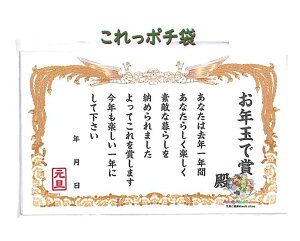 これっポチ袋
お年玉で賞
殿
あなたは去年一年間
あなたらしく楽しく
素敵な暮らしを
納められました
よってこれを賞します
今年も楽しい一年に
して下さい
年 月 日
元旦